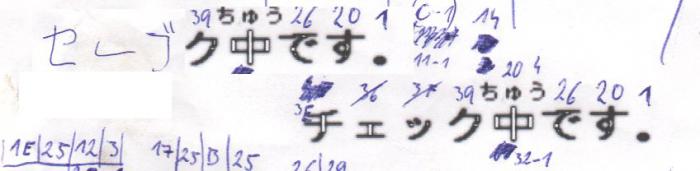 39 ちゅう 26 20 1 C-1 14
セーブク中です.
11-1
20 4
39 ちゅう 26 20 1
3E
チェック中です.
32-1
1E|25|12|3| 17|25|B|25
26|29